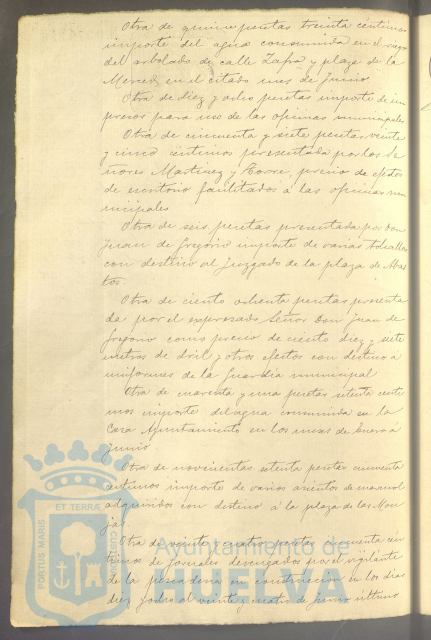 Otra de quince pesetas treinta céntimos
importe del agua consumida en el riego
del arbolado de calle Zafra y plaza de la
Merced en el citado mes de Junio
Otra de diez y ocho pesetas importe de im
presos para uso de las oficinas municipales
Otra de cincuenta y siete pesetas veinte
y cinco céntimos presentada por los Se
ñores Martinez y Torre, precio de efectos
de escritorio facilitados á las oficinas mu
nicipales
Otra de seis pesetas presentada por Don
Juan de Gregorio importe de varias toballas
con destino al juzgado de la plaza de Abas
tos.
Otra de ciento ochenta pesetas presenta
da por el expresado Señor Don Juan de
Gregorio como precio de ciento diez y siete
metros de dril y otros efectos con destino á
uniformes de la Guardia municipal
Otra de cuarenta y una pesetas setenta cénti
mos importe del agua consumida en la
Casa Ayuntamiento en los meses de Enero á
junio
Otra de novecientas setenta pesetas cuarenta
céntimos importe de varios asientos de marmol
adquiridos con destino á la plaza de las Mon
jas
Otra de veinte y cuatro pesetas cincuenta cén
timos de jornales devengados por el vigilante
de la pescaderia en construccion en los dias
diez y ocho al veinte y cuatro de junio último
PORTUS MARIS ET TERRÆ CUSTODIA
Ayuntamiento de
HUELVA